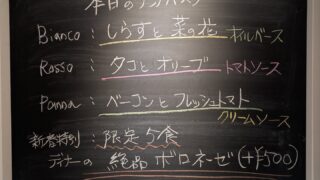 本日のランチパスタ
Bianco : しらすと菜の花 オイルベース
Rosso : タコとオリーブ トマトソース
Panna : ベーコンとフレッシュトマト
クリームソース
新春特別 : 限定5食
ディナーの 絶品ボロネーゼ(+¥500)